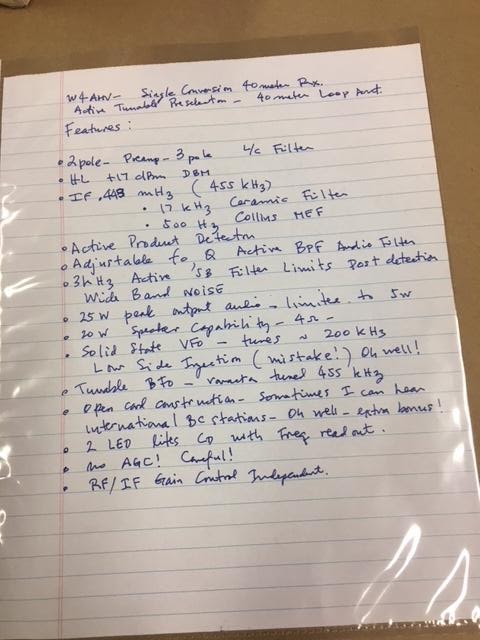 W4AHV- Single Conversion 40 meter Rx.
Active Tunable Preselector - 40 meter Loop Ant.
Features:
• 2 pole- Preamp- 3 pole L/C Filter
• HL +17 dBm DBM
• IF .448 mHz (455 kHz)
• 17 kHz Ceramic Filter
• 500 Hz Collins MEF
• Active Product Detector
• Adjustable fo, Q Active BPF Audio Filter
• 3kHz Active SB Filter Limits Post detection
Wide Band NOISE
• 25 W peak output audio - limited to 5w
• 20 W Speaker Capability - 4Ω -
• Solid State VFO - tunes ~ 200 kHz
Low Side Injection (mistake!) Oh well!
• Tunable BFO - varactor tuned 455 kHz
• Open card construction - sometimes I can hear
international BC stations - Oh well - extra bonus!
• 2 LED lites with Freq readout.
• no AGC! Careful!
• RF/IF Gain Control Independent.